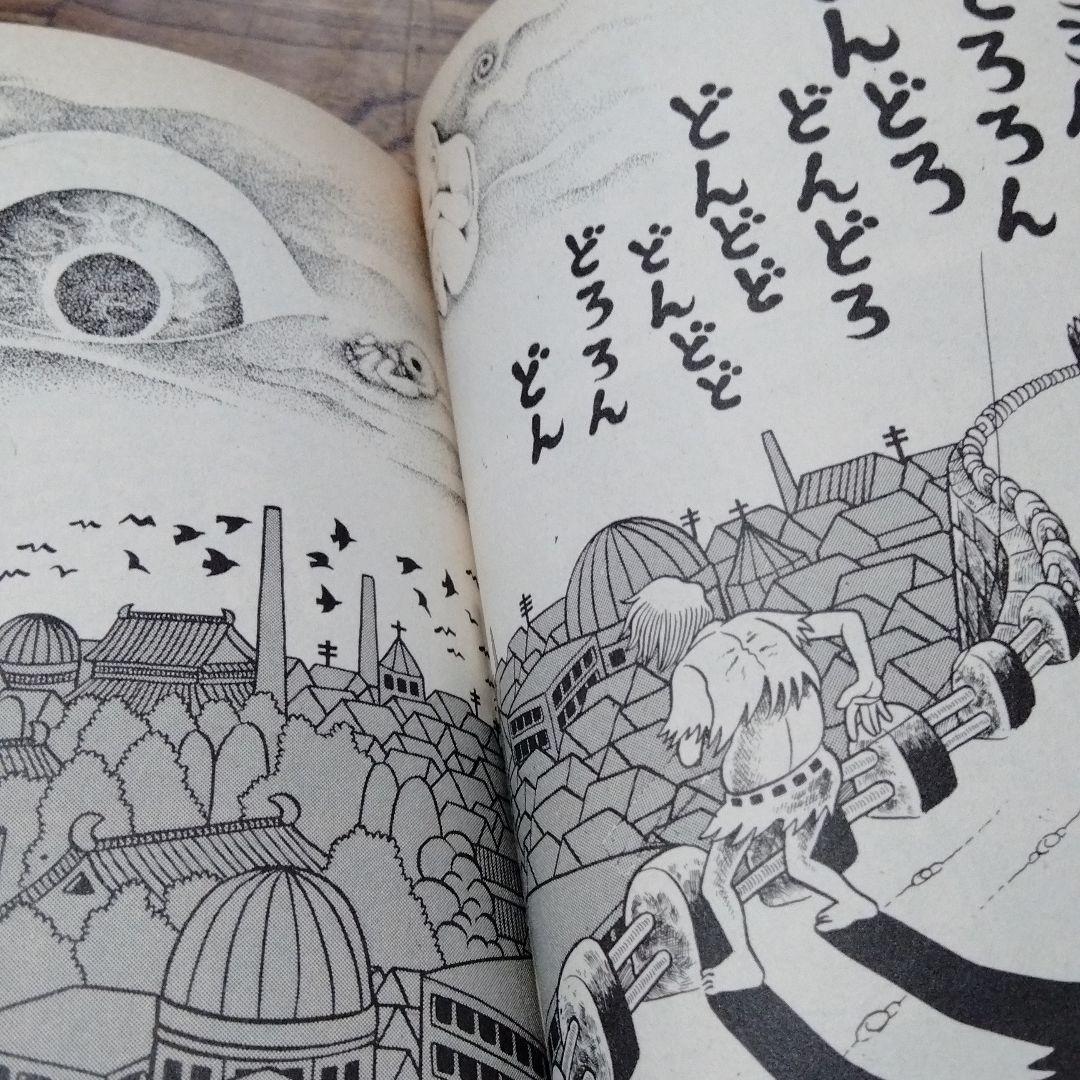 どろろん
んどろ
どんどろ
どんどど
どんどど
どろろん
どん